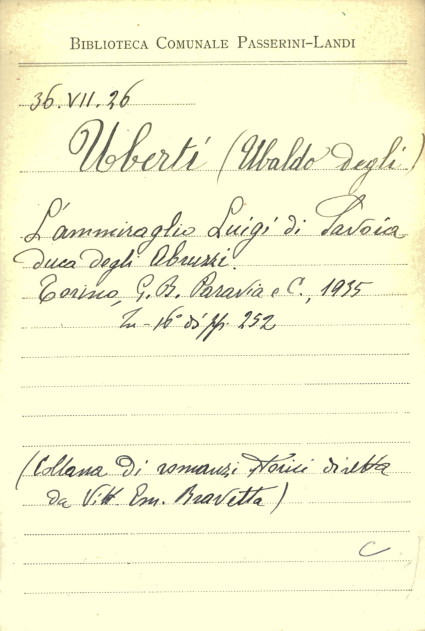 BIBLIOTECA COMUNALE PASSERINI-LANDI
36.VII.26
Uberti (Ubaldo degli)
L'ammiraglio Luigi di Savoia
duca degli Abruzzi.
Torino, G. B. Paravia e C., 1935
In-16° di pp. 252
(Collana di romanzi storici diretta
da Vitt. Em. Bravetta)
C